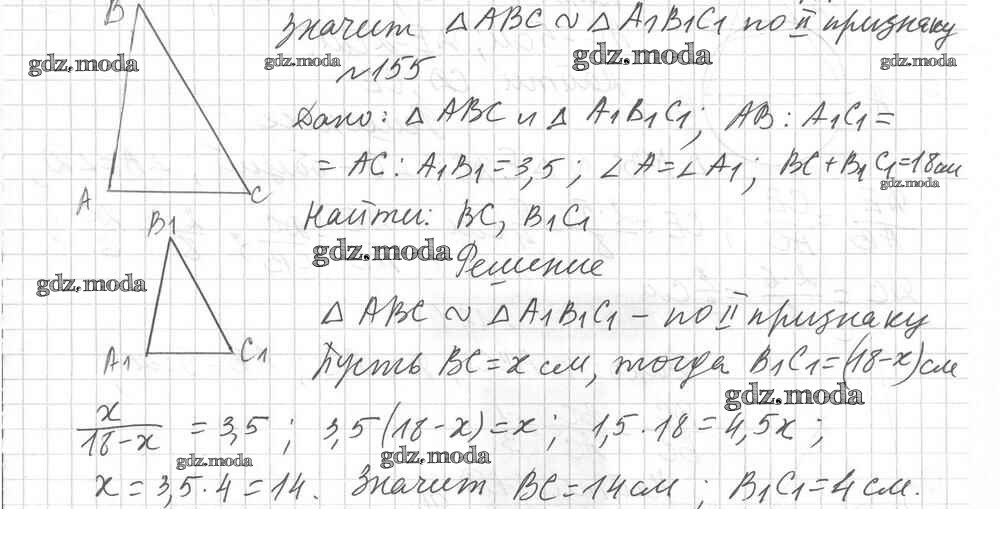 B
Значит △ABC ~ △A1B1C1 по II признаку
gdz.moda gdz.moda gdz.moda gdz.moda
№155
Дано: △ABC и △A1B1C1; AB : A1C1 =
= AC : A1B1 = 3,5; ∠A = ∠A1; BC + B1C1 = 18 см
gdz.moda
A C
Найти: BC, B1C1
B1
gdz.moda
Решение
gdz.moda
△ABC ~ △A1B1C1 – по II признаку
A1 C1
Пусть BC = x см, тогда B1C1 = (18-x) см
gdz.moda
x/18-x = 3,5; 3,5(18-x) = x; 1,5·18 = 4,5x;
gdz.moda gdz.moda
x = 3,5·4 = 14. Значит BC = 14 см; B1C1 = 4 см.